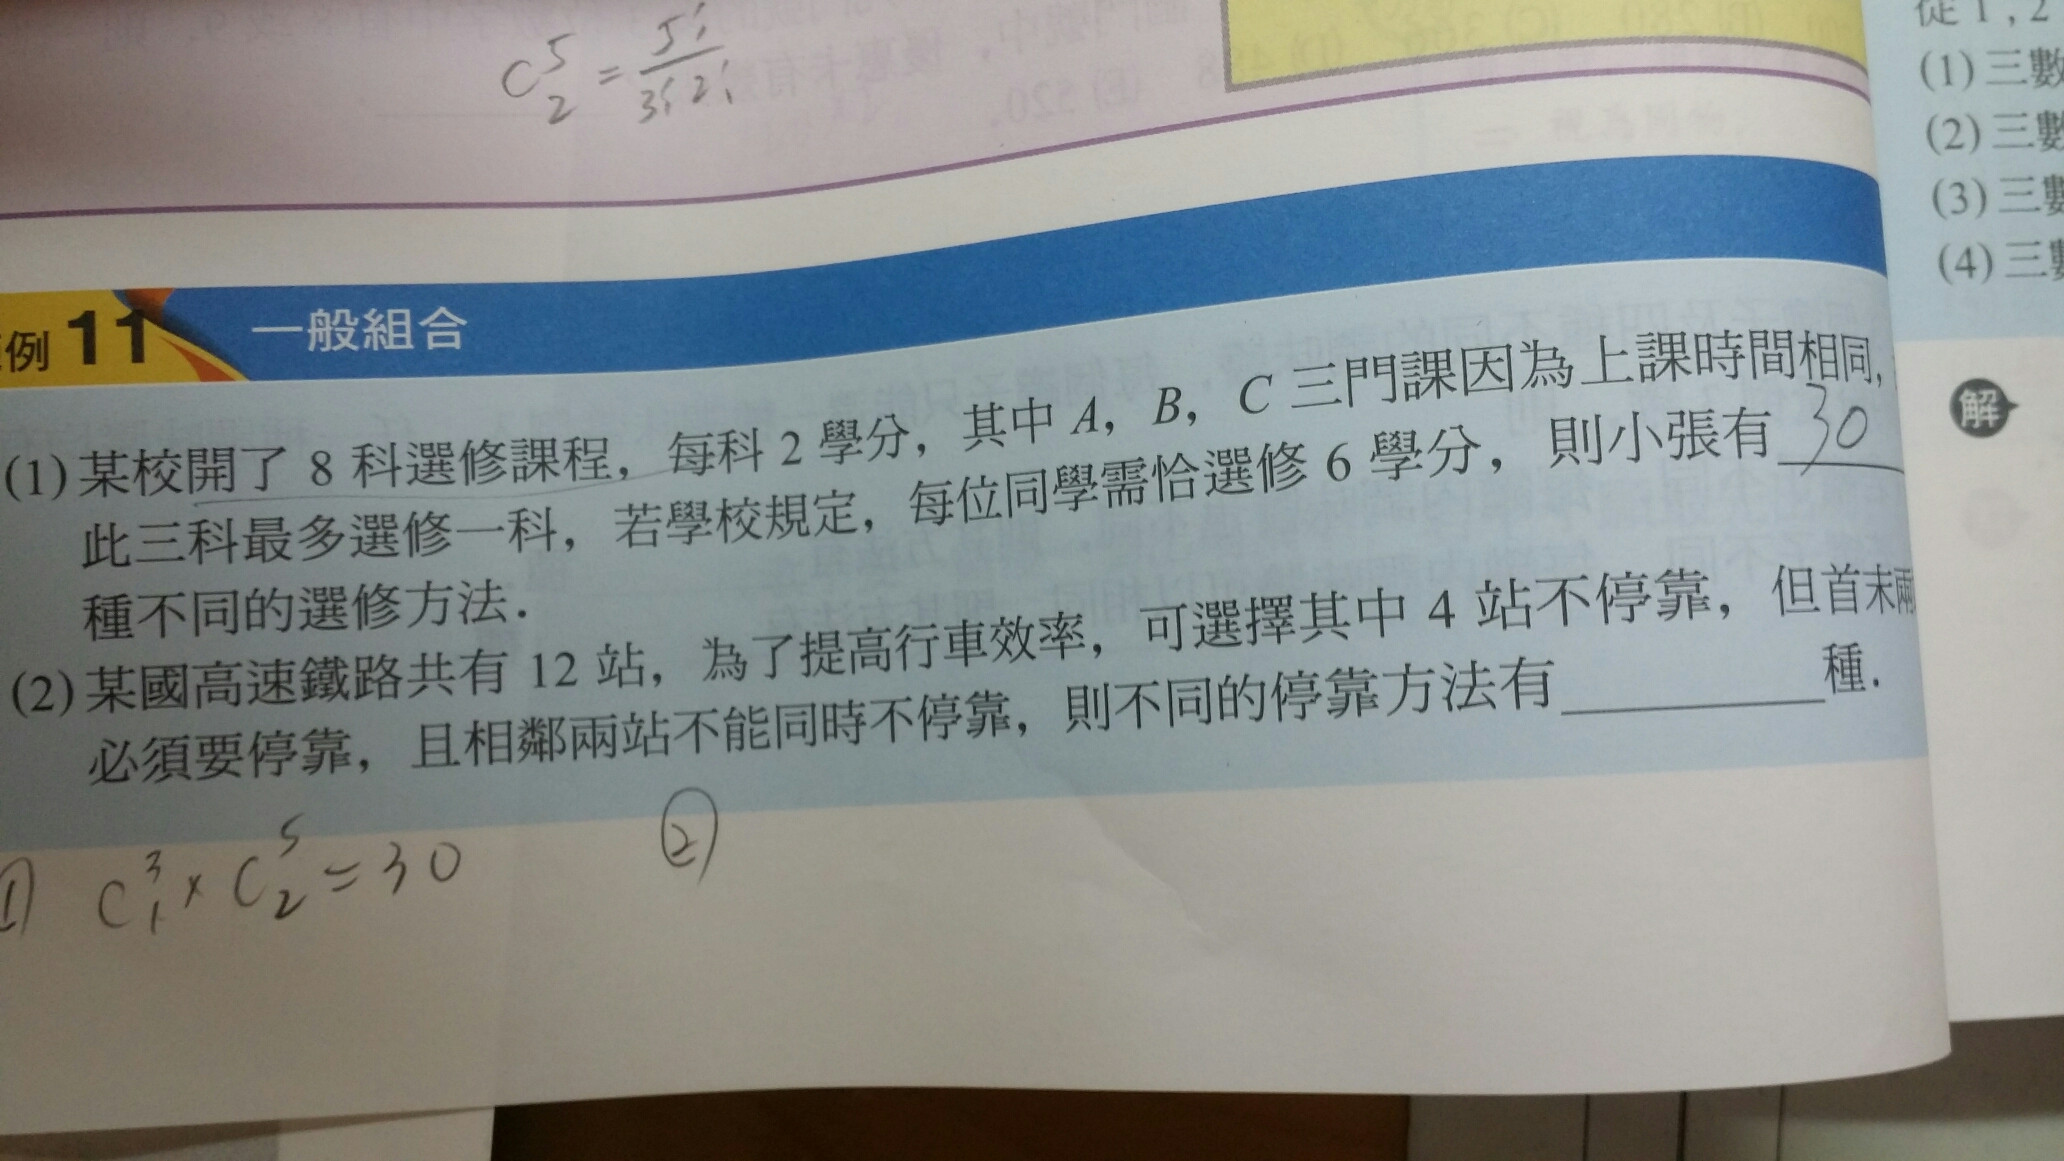 C⁵₂ = 5!/3!2!
從1,2
(1) 三數
(2) 三數
(3) 三數
(4) 三數
例 11 一般組合
(1) 某校開了 8 科選修課程，每科 2 學分，其中 A，B，C 三門課因為上課時間相同，
此三科最多選修一科，若學校規定，每位同學需恰選修 6 學分，則小張有 30
種不同的選修方法．
(2) 某國高速鐵路共有 12 站，為了提高行車效率，可選擇其中 4 站不停靠，但首末兩
必須要停靠，且相鄰兩站不能同時不停靠，則不同的停靠方法有＿＿＿＿種．
解
① C³₁ × C⁵₂ = 30
②